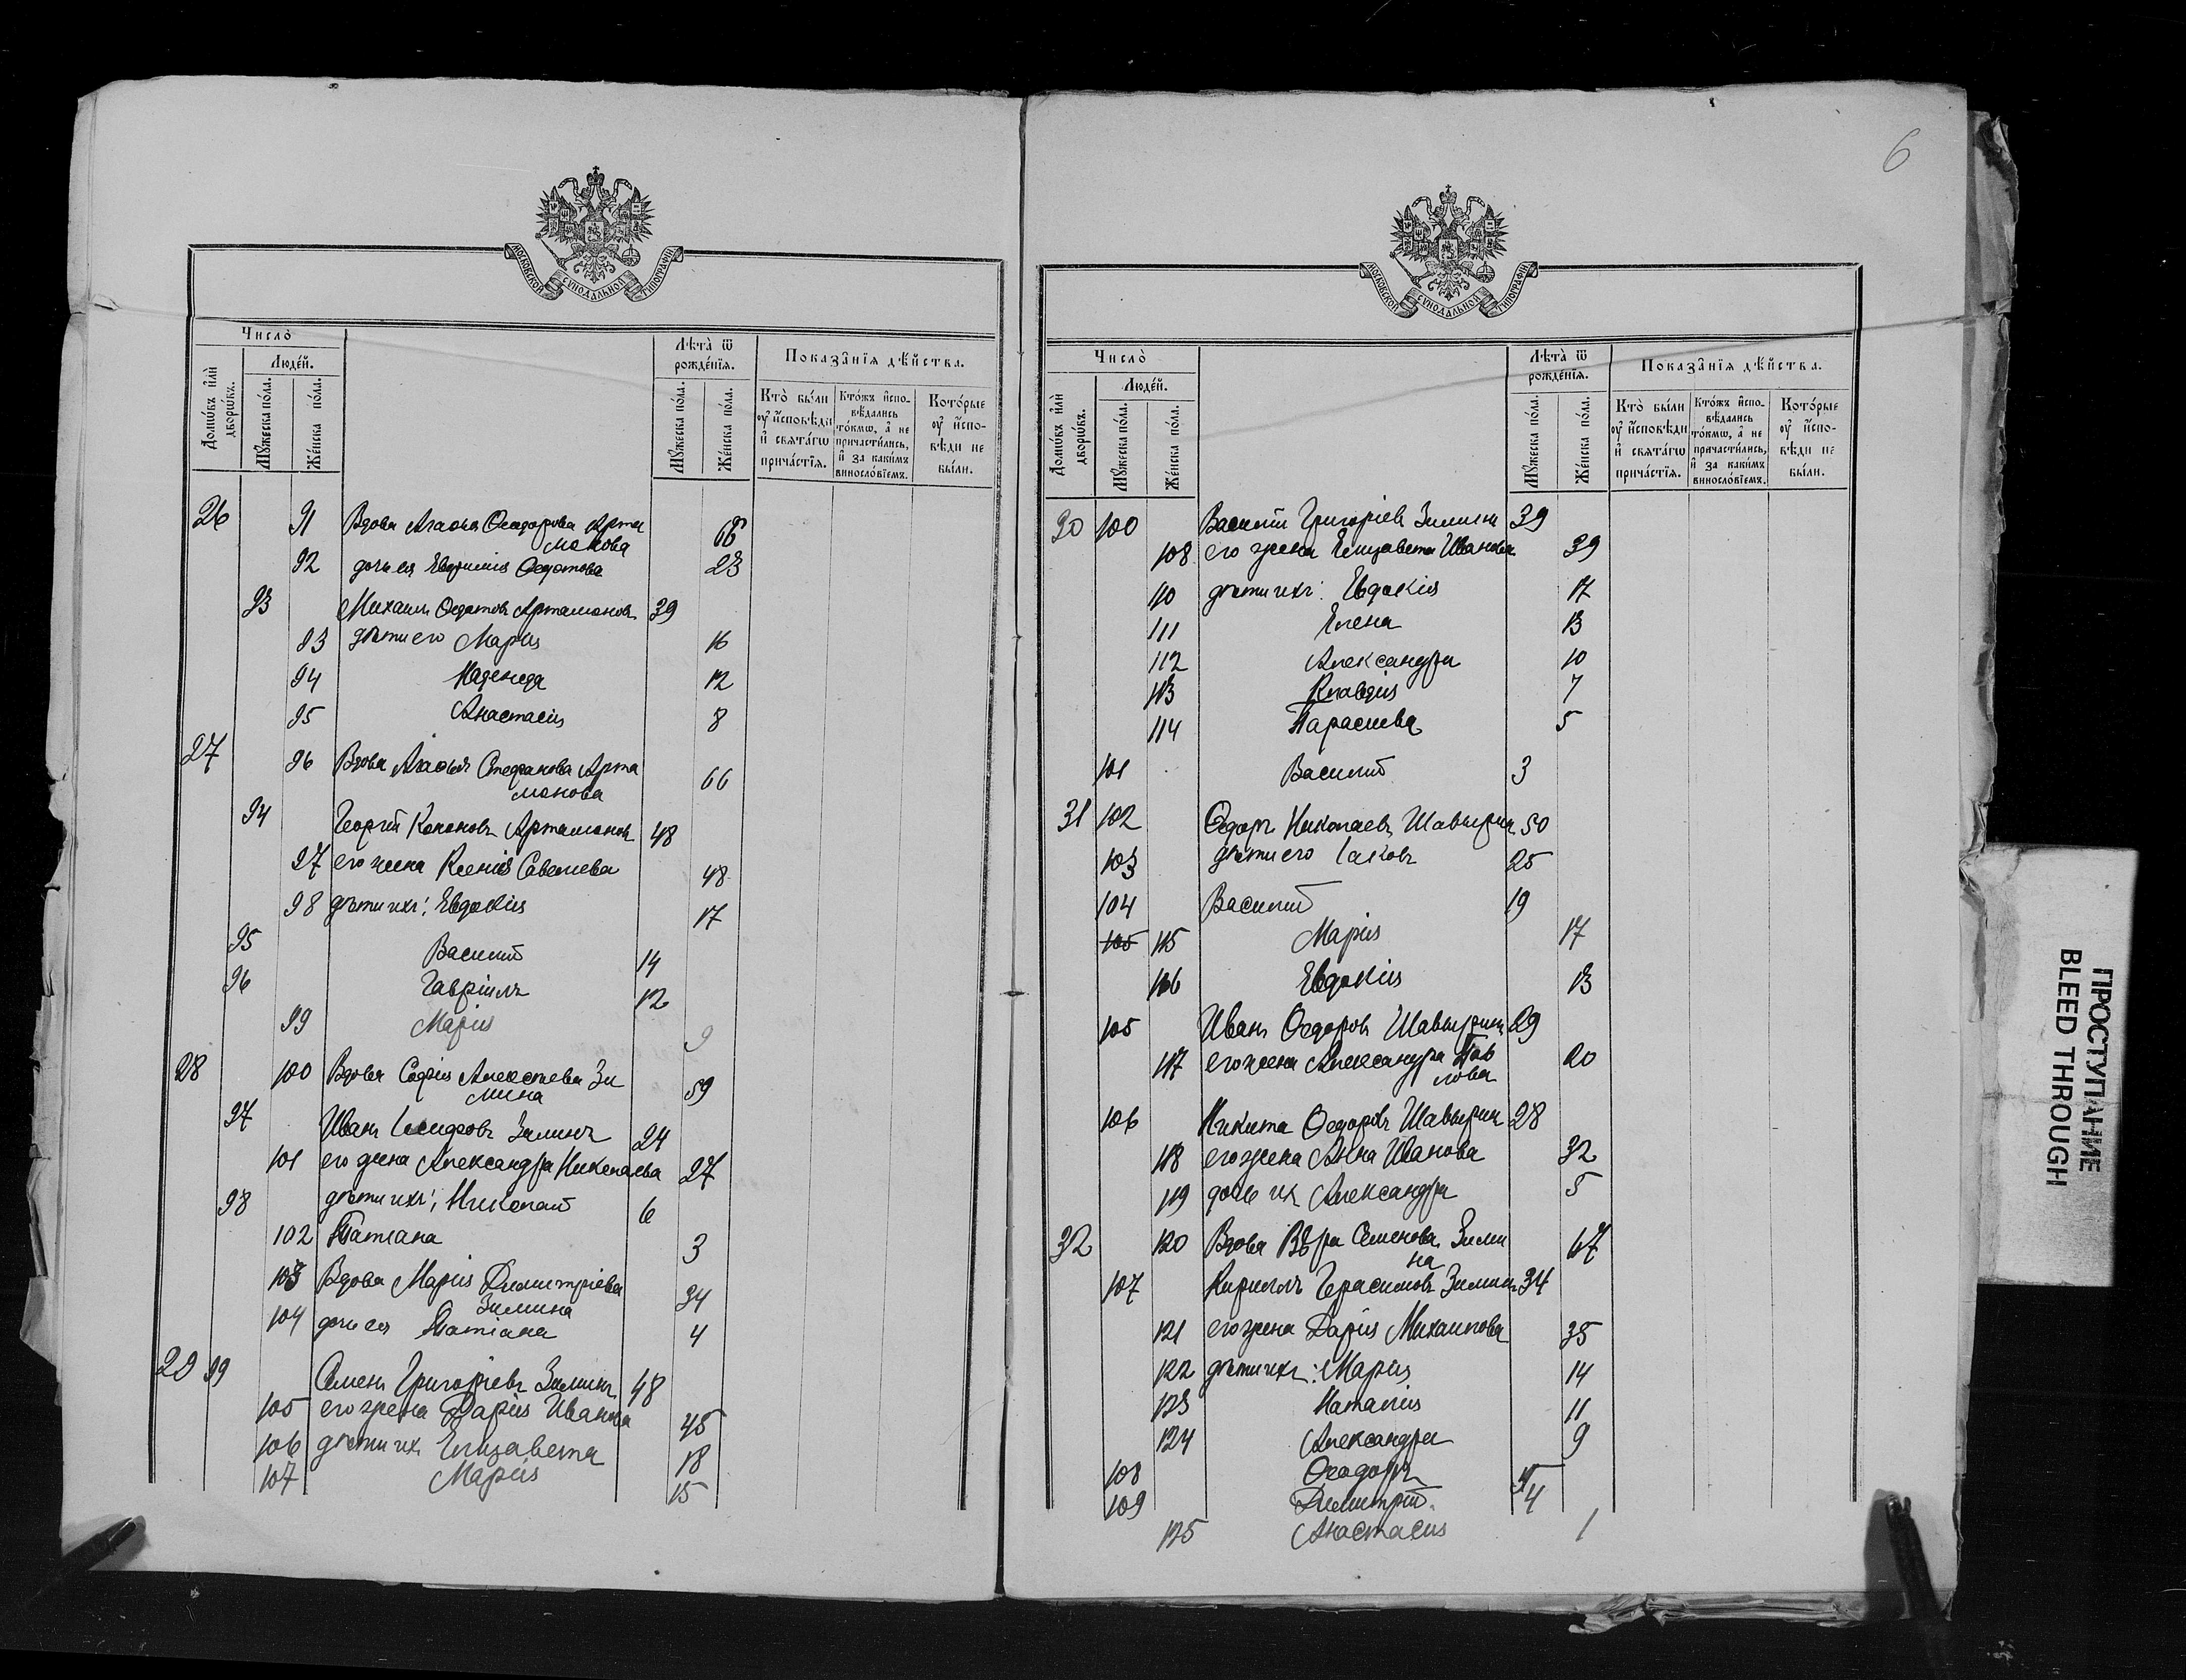 6
МОСКОВСКОЙ СѴНОДАЛЬНОЙ ТИПОГРАФІИ
Число̀
Домѡвъ и҆лѝ дворѡвъ.
Люде́й.
Мꙋжеска по́ла.
Же́нска по́ла.
Лѣта̀ ѿ рожде́нїѧ.
Мꙋжеска по́ла.
Же́нска по́ла.
Показа̑нїѧ дѣ́йства.
Кто̀ бы́ли ᲂу҆ и҆сповѣди и҆ свѧта́гѡ прича́стїѧ.
Кто́жъ и҆спо-
вѣдались
то́кмѡ, а҆ не
причасти́лись,
и҆ за каки́мъ
винослов́їемъ.
Кото́рые
ᲂу҆ и҆спо-
вѣди не
бы́ли.
26 91 Вдова Агаѳья Ѳеодорова Арта
монова 68
92 дочь ея Евфимія Ѳедотова 23
93 Михаилъ Ѳедотовъ Артамоновъ 39
93 дѣти его Марія 16
94 Надежда 12
95 Анастасія 8
27 96 Вдова Агаѳья Стефанова Арта
монова 66
94 Георгій Кононовъ Артамоновъ 48
97 его жена Ксенія Савельева 48
98 дѣти ихъ: Евдокія 17
95 Василій 14
96 Гавріилъ 12
99 Марія 9
28 100 Вдова Софія Алексѣева Зи
мина 59
97 Иванъ Исидоровъ Зиминъ 24
101 его жена Александра Николаева 27
98 дѣти ихъ: Николай 6
102 Татіана 3
103 Вдова Марія Димитріева
Зимина 34
104 дочь ея Татіана 4
29 99 Семенъ Григорьевъ Зиминъ 48
105 его жена Дарія Иванова 45
106 дѣти ихъ Елизавета 18
107 Марія 15
МОСКОВСКОЙ СѴНОДАЛЬНОЙ ТИПОГРАФІИ
Число̀
Домѡвъ и҆лѝ дворѡвъ.
Люде́й.
Мꙋжеска по́ла.
Же́нска по́ла.
Лѣта̀ ѿ рожде́нїѧ.
Мꙋжеска по́ла.
Же́нска по́ла.
Показа̑нїѧ дѣ́йства.
Кто̀ бы́ли ᲂу҆ и҆сповѣди и҆ свѧта́гѡ прича́стїѧ.
Кто́жъ и҆спо-
вѣдались
то́кмѡ, а҆ не
причасти́лись,
и҆ за каки́мъ
винослов́їемъ.
Кото́рые
ᲂу҆ и҆спо-
вѣди не
бы́ли.
30 100 Василій Григоріевъ Зиминъ 39
108 его жена Елизавета Иванова 39
110 дѣти ихъ: Евдокія 17
111 Елена 13
112 Александра 10
113 Клавдія 7
114 Параскева 5
101 Василій 3
31 102 Ѳедоръ Николаевъ Шавыринъ 50
103 дѣти его Іаковъ 25
104 Василій 19
105 115 Марія 17
116 Евдокія 13
105 Иванъ Ѳедоровъ Шавыринъ 29
117 его жена Александра Пав
лова 20
106 Никита Ѳедоровъ Шавыринъ 28
118 его жена Анна Иванова 32
119 дочь ихъ Александра 5
32 120 Вдова Вѣра Семенова Зими
на 67
107 Кириллъ Герасимовъ Зиминъ 34
121 его жена Дарія Михаилова 35
122 дѣти ихъ: Марія 14
123 Наталія 11
124 Александра 9
108 Ѳеодоръ
109 Димитрій 4
125 Анастасія 1
ПРОСТУПАНИЕ
BLEED THROUGH